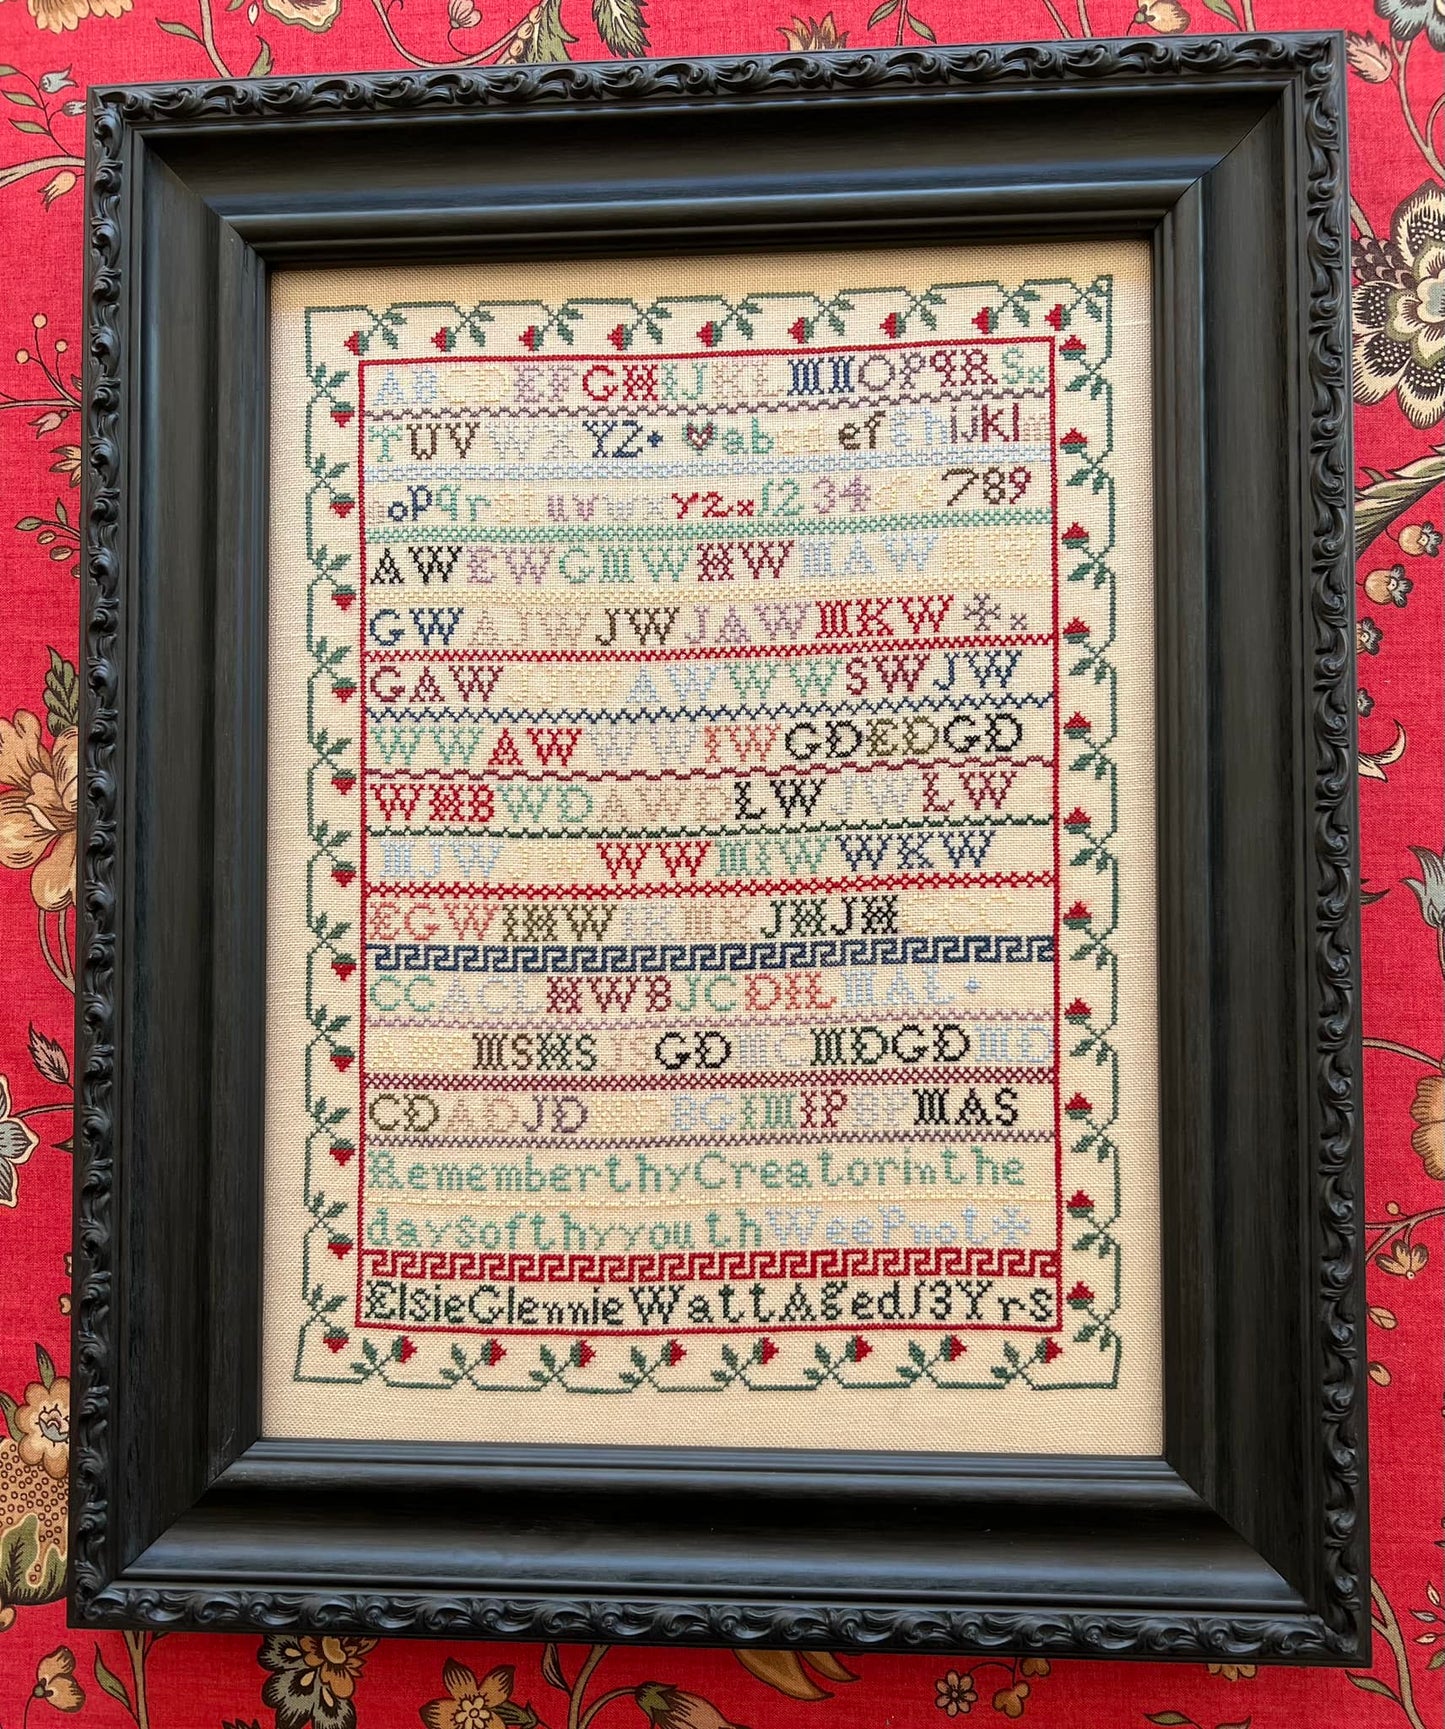 ABCDEFGHIJKLMNOPQRS
TUVWXYZ abcd ef ghijklm
nopqrstuvwxyz 123456789
AW EW GMW HW MAW MW
GW AJW JW JAW MKW
GAW JJW AW WW SW JW
WW AW WW IW GD ED GD
WHB WD AWD LW JW LW
MJW JW WW MIW WKW
EGW IHW IK MK JH JH GCC
CC ACL HWB JC DHL MAL
MS HS JS GD MC MD GD MD
CD AD JD BG IM IP BP MAS
Remember thy Creator in the
days of thy youth Weep not
Elsie Glennie Watt Aged 13 Yrs